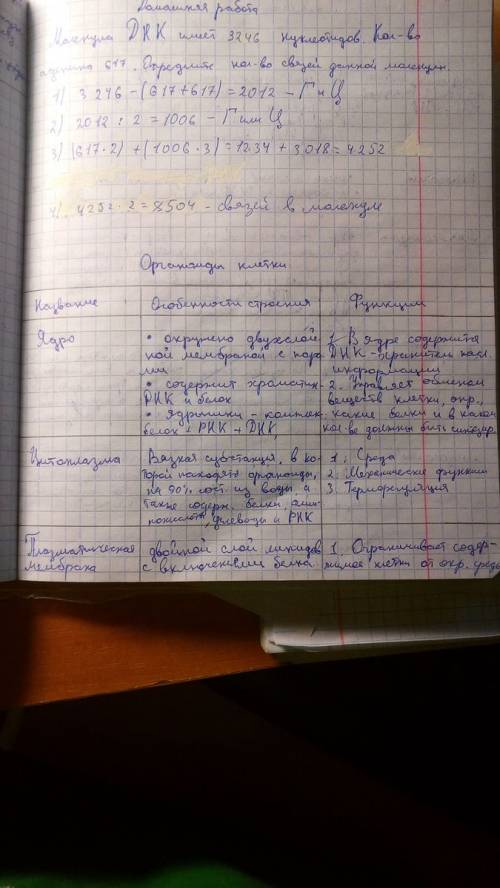 Домашняя работа
Молекула ДНК имеет 3246 нуклеотидов. Кол-во
аденина 617. Определите кол-во связей данной молекулы.
1) 3246 - (617+617) = 2012 - Г и Ц
2) 2012 : 2 = 1006 - Г или Ц
3) (617·2) + (1006·3) = 1234 + 3018 = 4252
4) 4252 · 2 = 8504 - связей в молекуле
Органоиды клетки
Название
Особенности строения
Функции
Ядро
• окружено двухслой-
ной мембраной с пора-
ми
• содержит хроматин-
РНК и белок
• ядрышки - комплекс
белок + РНК + ДНК,
1. В ядре содержится
ДНК - хранитель насл.
информации
2. Управляет обменом
веществ клетки, опр.,
какие белки и в каком
кол-ве должны быть синтезир.
Цитоплазма
Вязкая субстанция, в ко-
торой находятся органоиды,
на 90% сост. из воды, а
также содерж. белки, амин-
кислоты, углеводы и РНК
1. Среда
2. Механические функции
3. Терморегуляция
Плазматическая
мембрана
двойной слой липидов
с включениями белка
1. Ограничивает содер-
жимое клетки от окр. среды